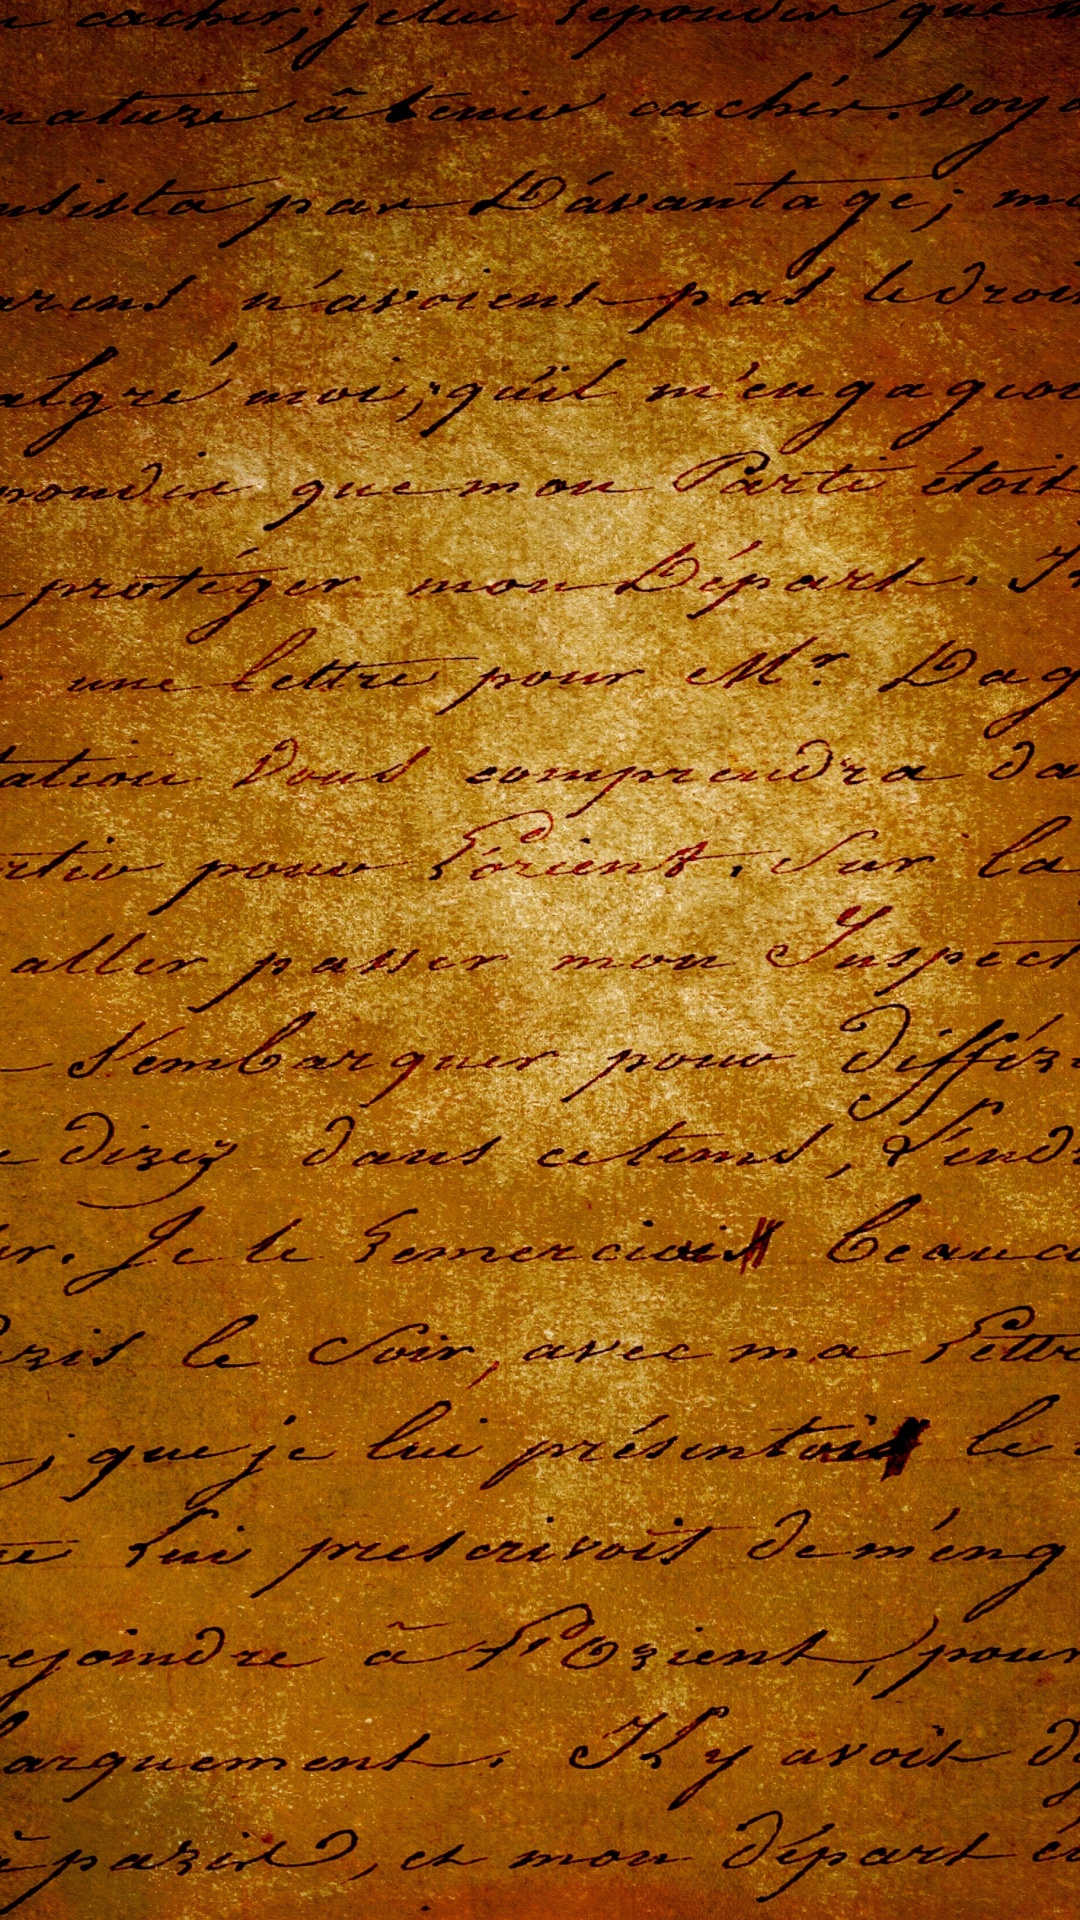 cacher; je lui repondis que
nature à tenir cacher. Voya
nsista pas D'avantage; ma
arens n'avoient pas le droit
algré moi; qu'il m'engageoi
pondis que mon Parti étoit
protéger mon Départ. Il
une lettre pour Mr. Dag
tation Vous comprendra da
rtir pour L'orient. Sur la
aller passer mon Inspect
S'embarquer pour différe
direz dans ce tems, L'endr
ur. Je le remerciai beauco
Paris le Soir, avec ma Lettre
; que je lui présentai le
Lui prescrivoit de m'eng
rejoindre à L'Orient, pour
barquement. Il y avoit
à paris, et mon départ